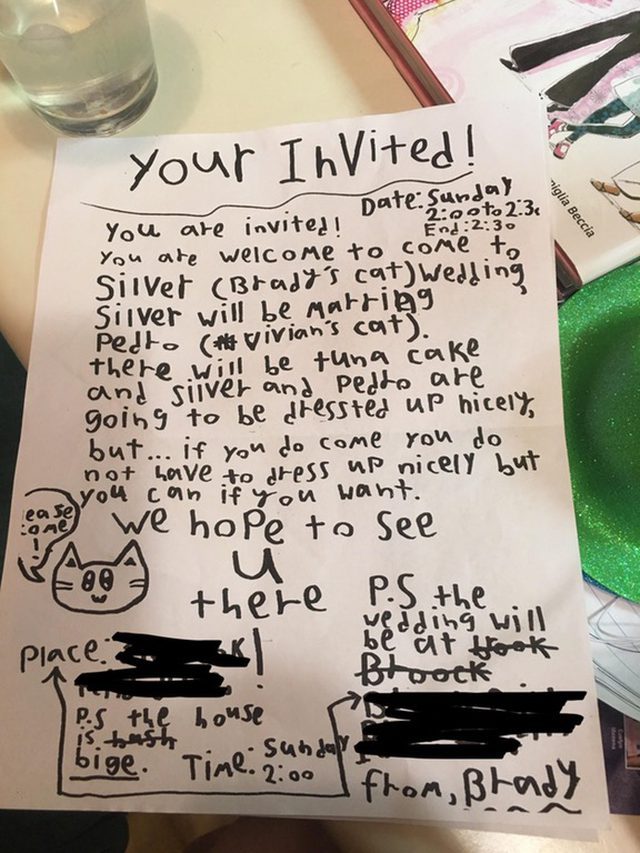 Your Invited!
Date: Sunday
2:00 to 2:3
End: 2:30
You are invited!
You are welcome to come to
Silver (Brady's cat) Wedding,
Silver will be marring
Pedro (Vivian's cat).
there will be tuna cake
and silver and Pedro are
going to be dressted up nicely,
but... if you do come you do
not have to dress up nicely but
you can if you want.
we hope to see
u
there
ease
ome
!
P.S the
wedding will
be at
Broock
Place:
!
P.S the house
is
bige.
Time: Sunday
2:00
from, Brady
miglia Beccia